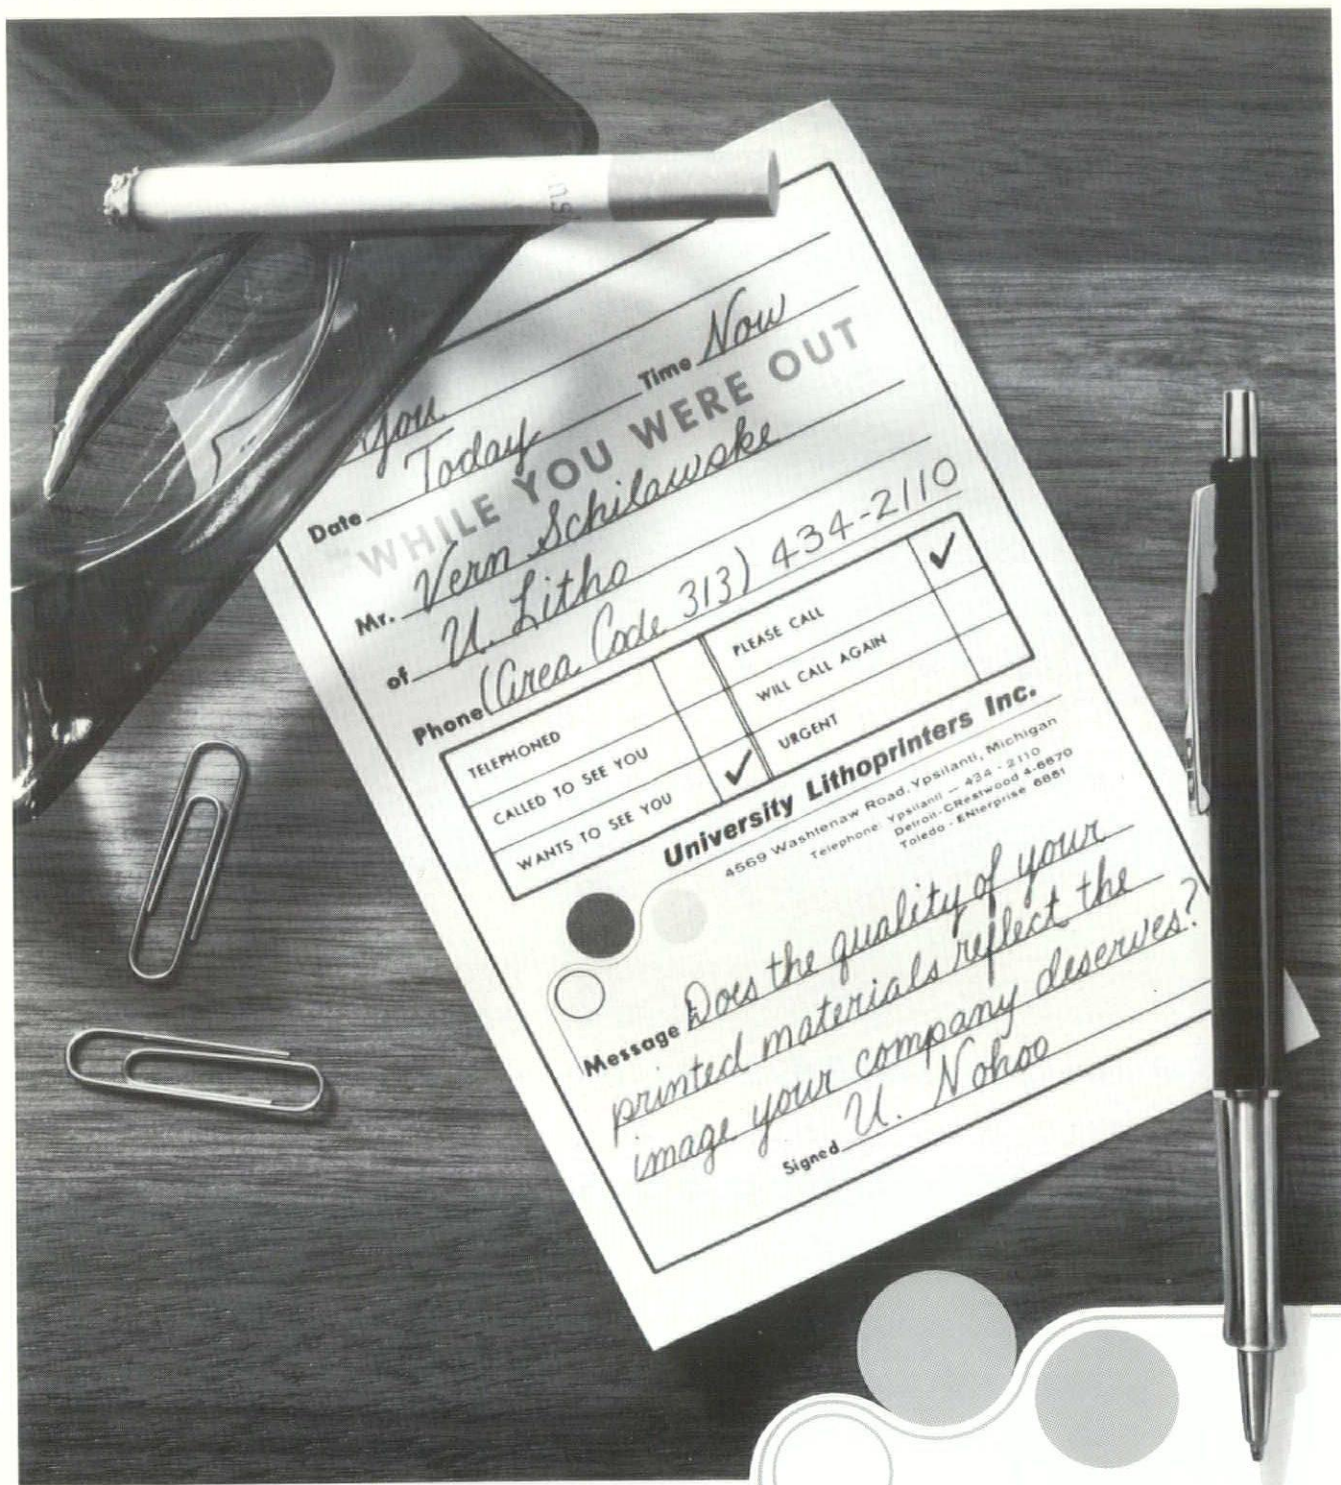 You
Date Today Time Now
WHILE YOU WERE OUT
Mr. Vern Schilawske
of U. Litho
Phone (Area Code 313) 434-2110
TELEPHONED
CALLED TO SEE YOU
WANTS TO SEE YOU ✓
PLEASE CALL ✓
WILL CALL AGAIN
URGENT
University Lithoprinters Inc.
4569 Washtenaw Road, Ypsilanti, Michigan
Telephone: Ypsilanti — 434-2110
Detroit-CRestwood 4-6870
Toledo-ENterprise 6881
Message Does the quality of your
printed materials reflect the
image your company deserves?
Signed U. Nohoo